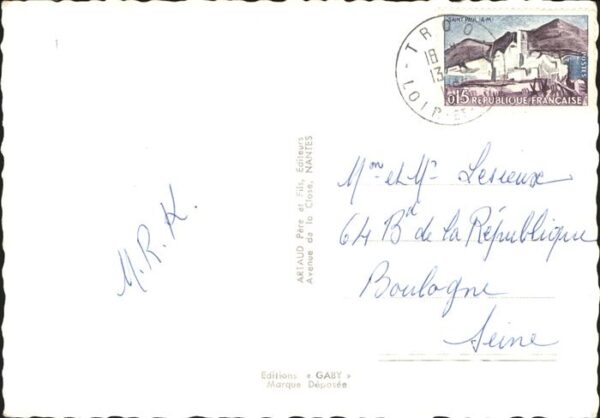 M.R.K.
ARTAUD Père et Fils, Éditeurs
Avenue de la Close, NANTES
Editions « GABY »
Marque Déposée
SAINT-PAUL (A-M)
POSTES
0,15 RÉPUBLIQUE FRANÇAISE
TROO
18
13
LOIR-ET-
Mme et Mr Lesieux
64 Bd de la République
Boulogne
Seine